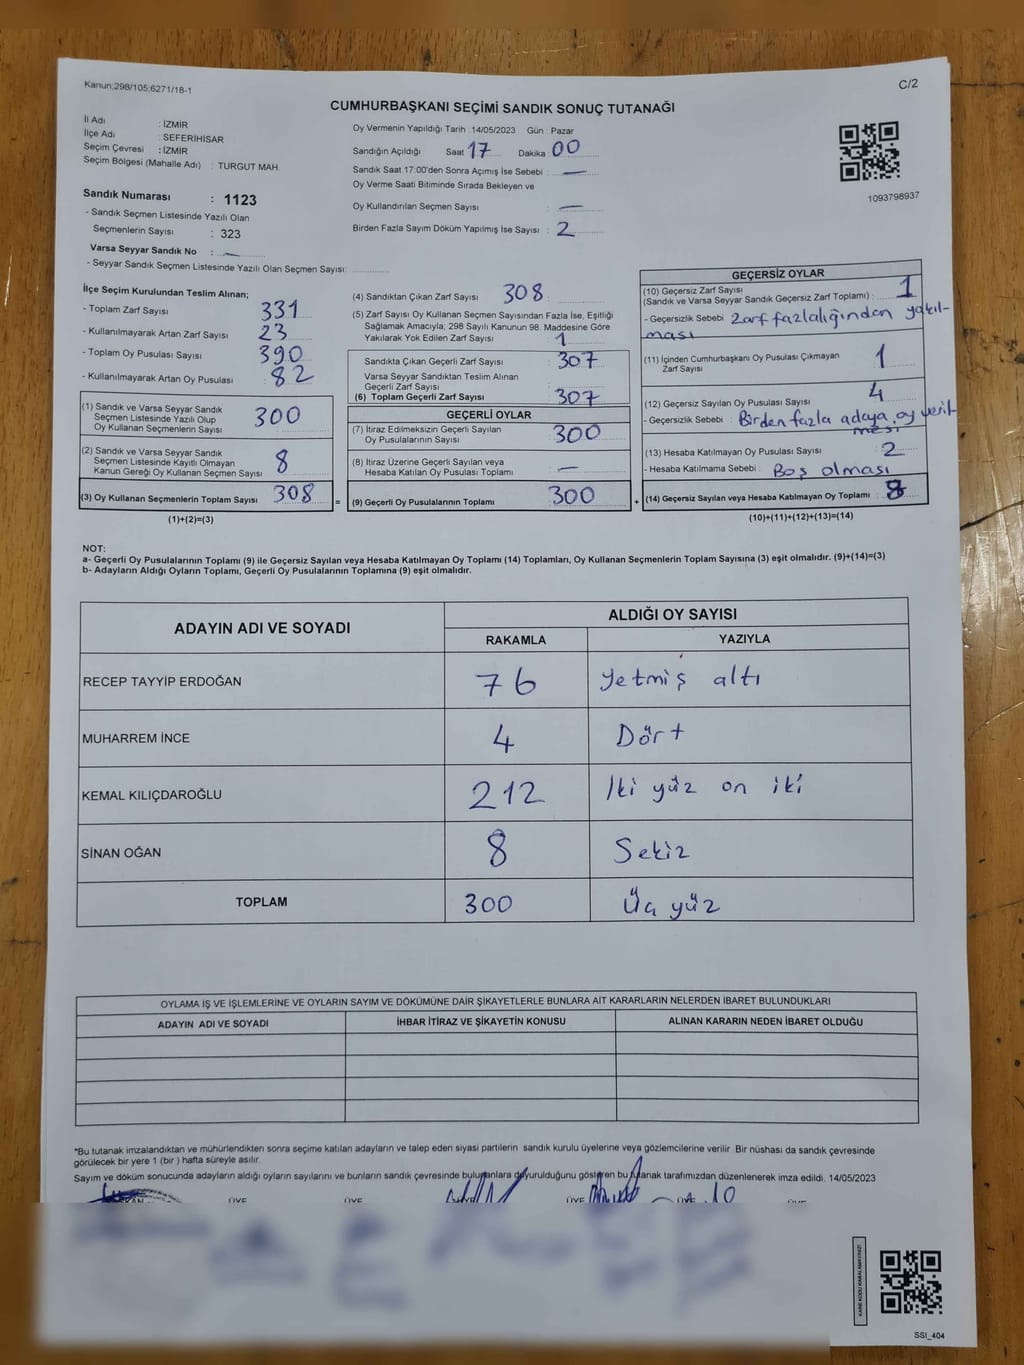 Kanun;298/105;6271/18-1
C/2
CUMHURBAŞKANI SEÇİMİ SANDIK SONUÇ TUTANAĞI
İl Adı : İZMİR
İlçe Adı : SEFERİHİSAR
Seçim Çevresi : İZMİR
Seçim Bölgesi (Mahalle Adı) : TURGUT MAH.
Sandık Numarası : 1123
- Sandık Seçmen Listesinde Yazılı Olan
Seçmenlerin Sayısı : 323
Varsa Seyyar Sandık No : —
- Seyyar Sandık Seçmen Listesinde Yazılı Olan Seçmen Sayısı:
Oy Vermenin Yapıldığı Tarih :14/05/2023 Gün : Pazar
Sandığın Açıldığı Saat 17 Dakika : 00
Sandık Saat 17:00'den Sonra Açımış İse Sebebi : —
Oy Verme Saati Bitiminde Sırada Bekleyen ve
Oy Kullandırılan Seçmen Sayısı : —
Birden Fazla Sayım Döküm Yapılmış İse Sayısı : 2
1093798937
İlçe Seçim Kurulundan Teslim Alınan;
- Toplam Zarf Sayısı : 331
- Kullanılmayarak Artan Zarf Sayısı : 23
- Toplam Oy Pusulası Sayısı : 390
- Kullanılmayarak Artan Oy Pusulası : 82
(1) Sandık ve Varsa Seyyar Sandık
Seçmen Listesinde Yazılı Olup
Oy Kullanan Seçmenlerin Sayısı 300
(2) Sandık ve Varsa Seyyar Sandık
Seçmen Listesinde Kayıtlı Olmayan
Kanun Gereği Oy Kullanan Seçmen Sayısı 8
(3) Oy Kullanan Seçmenlerin Toplam Sayısı 308
(1)+(2)=(3)
=
(4) Sandıktan Çıkan Zarf Sayısı 308
(5) Zarf Sayısı Oy Kullanan Seçmen Sayısından Fazla İse, Eşitliği
Sağlamak Amacıyla; 298 Sayılı Kanunun 98. Maddesine Göre
Yakılarak Yok Edilen Zarf Sayısı : 1
Sandıkta Çıkan Geçerli Zarf Sayısı : 307
Varsa Seyyar Sandıktan Teslim Alınan
Geçerli Zarf Sayısı
(6) Toplam Geçerli Zarf Sayısı : 307
GEÇERLİ OYLAR
(7) İtiraz Edilmeksizin Geçerli Sayılan
Oy Pusulalarının Sayısı : 300
(8) İtiraz Üzerine Geçerli Sayılan veya
Hesaba Katılan Oy Pusulası Toplamı : —
(9) Geçerli Oy Pusulalarının Toplamı : 300
+
GEÇERSİZ OYLAR
(10) Geçersiz Zarf Sayısı
(Sandık ve Varsa Seyyar Sandık Geçersiz Zarf Toplamı) : 1
- Geçersizlik Sebebi : Zarf fazlalığından yakıl-
ması
(11) İçinden Cumhurbaşkanı Oy Pusulası Çıkmayan
Zarf Sayısı 1
(12) Geçersiz Sayılan Oy Pusulası Sayısı 4
- Geçersizlik Sebebi : Birden fazla adaya oy veril-
mesi
(13) Hesaba Katılmayan Oy Pusulası Sayısı 2
- Hesaba Katılmama Sebebi : Boş olması
(14) Geçersiz Sayılan veya Hesaba Katılmayan Oy Toplamı : 8
(10)+(11)+(12)+(13)=(14)
NOT:
a- Geçerli Oy Pusulalarının Toplamı (9) ile Geçersiz Sayılan veya Hesaba Katılmayan Oy Toplamı (14) Toplamları, Oy Kullanan Seçmenlerin Toplam Sayısına (3) eşit olmalıdır. (9)+(14)=(3)
b- Adayların Aldığı Oyların Toplamı, Geçerli Oy Pusulalarının Toplamına (9) eşit olmalıdır.
ADAYIN ADI VE SOYADI
ALDIĞI OY SAYISI
RAKAMLA YAZIYLA
RECEP TAYYİP ERDOĞAN 76 Yetmiş altı
MUHARREM İNCE 4 Dört
KEMAL KILIÇDAROĞLU 212 İki yüz on iki
SİNAN OĞAN 8 Sekiz
TOPLAM 300 Üç yüz
OYLAMA İŞ VE İŞLEMLERİNE VE OYLARIN SAYIM VE DÖKÜMÜNE DAİR ŞİKAYETLERLE BUNLARA AİT KARARLARIN NELERDEN İBARET BULUNDUKLARI
ADAYIN ADI VE SOYADI İHBAR İTİRAZ VE ŞİKAYETİN KONUSU ALINAN KARARIN NEDEN İBARET OLDUĞU
*Bu tutanak imzalandıktan ve mühürlendikten sonra seçime katılan adayların ve talep eden siyasi partilerin sandık kurulu üyelerine veya gözlemcilerine verilir. Bir nüshası da sandık çevresinde
görülecek bir yere 1 (bir ) hafta süreyle asılır.
Sayım ve döküm sonucunda adayların aldığı oyların sayılarını ve bunların sandık çevresinde bulunanlara duyurulduğunu gösteren bu tutanak tarafımızdan düzenlenerek imza edildi. 14/05/2023
ÜYE ÜYE ÜYE ÜYE ÜYE
SSI_404